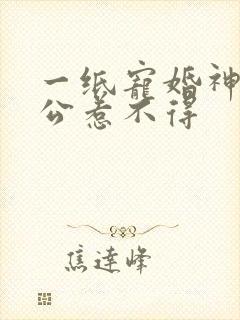 一纸寵婚神
公惹不得
焦達峰